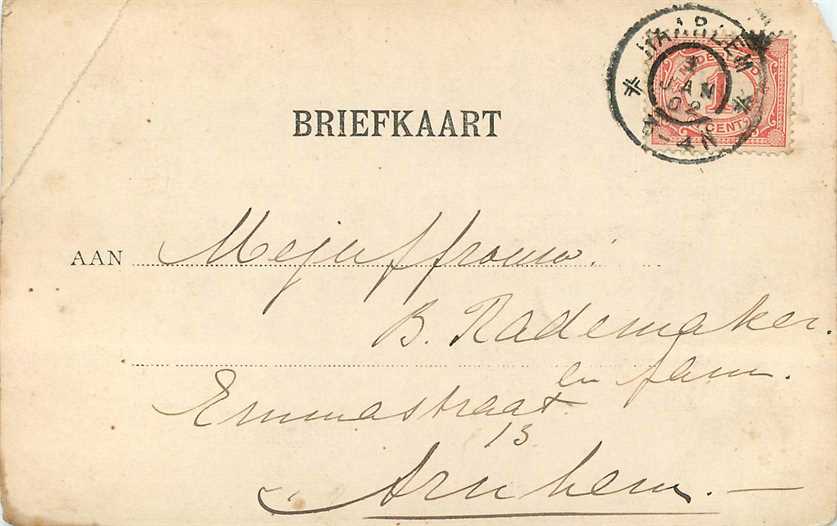 HAARLEM
JAN
02
1 CENT
BRIEFKAART
AAN Mejuffrouw:
B. Rademaker.
en fam.
Emmastraat
13
Arnhem. —